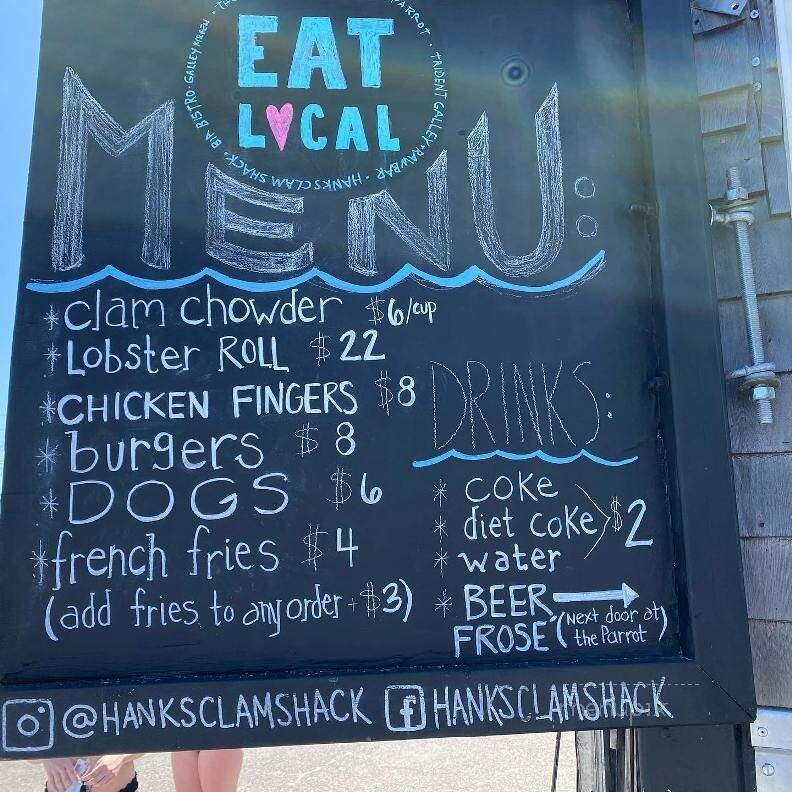 EAT
LOCAL
PARROT · TRIDENT GALLEY · RAWBAR · HANKS CLAM SHACK · BIA BISTRO · GALLEY KITCHEN ·
MENU:
* clam chowder $6/cup
* Lobster ROLL $22
* CHICKEN FINGERS $8
* burgers $8
* DOGS $6
* french fries $4
(add fries to any order + $3)
DRINKS:
* coke
* diet coke $2
* water
* BEER
FROSE (Next door at
the Parrot)
@HANKSCLAMSHACK HANKSCLAMSHACK